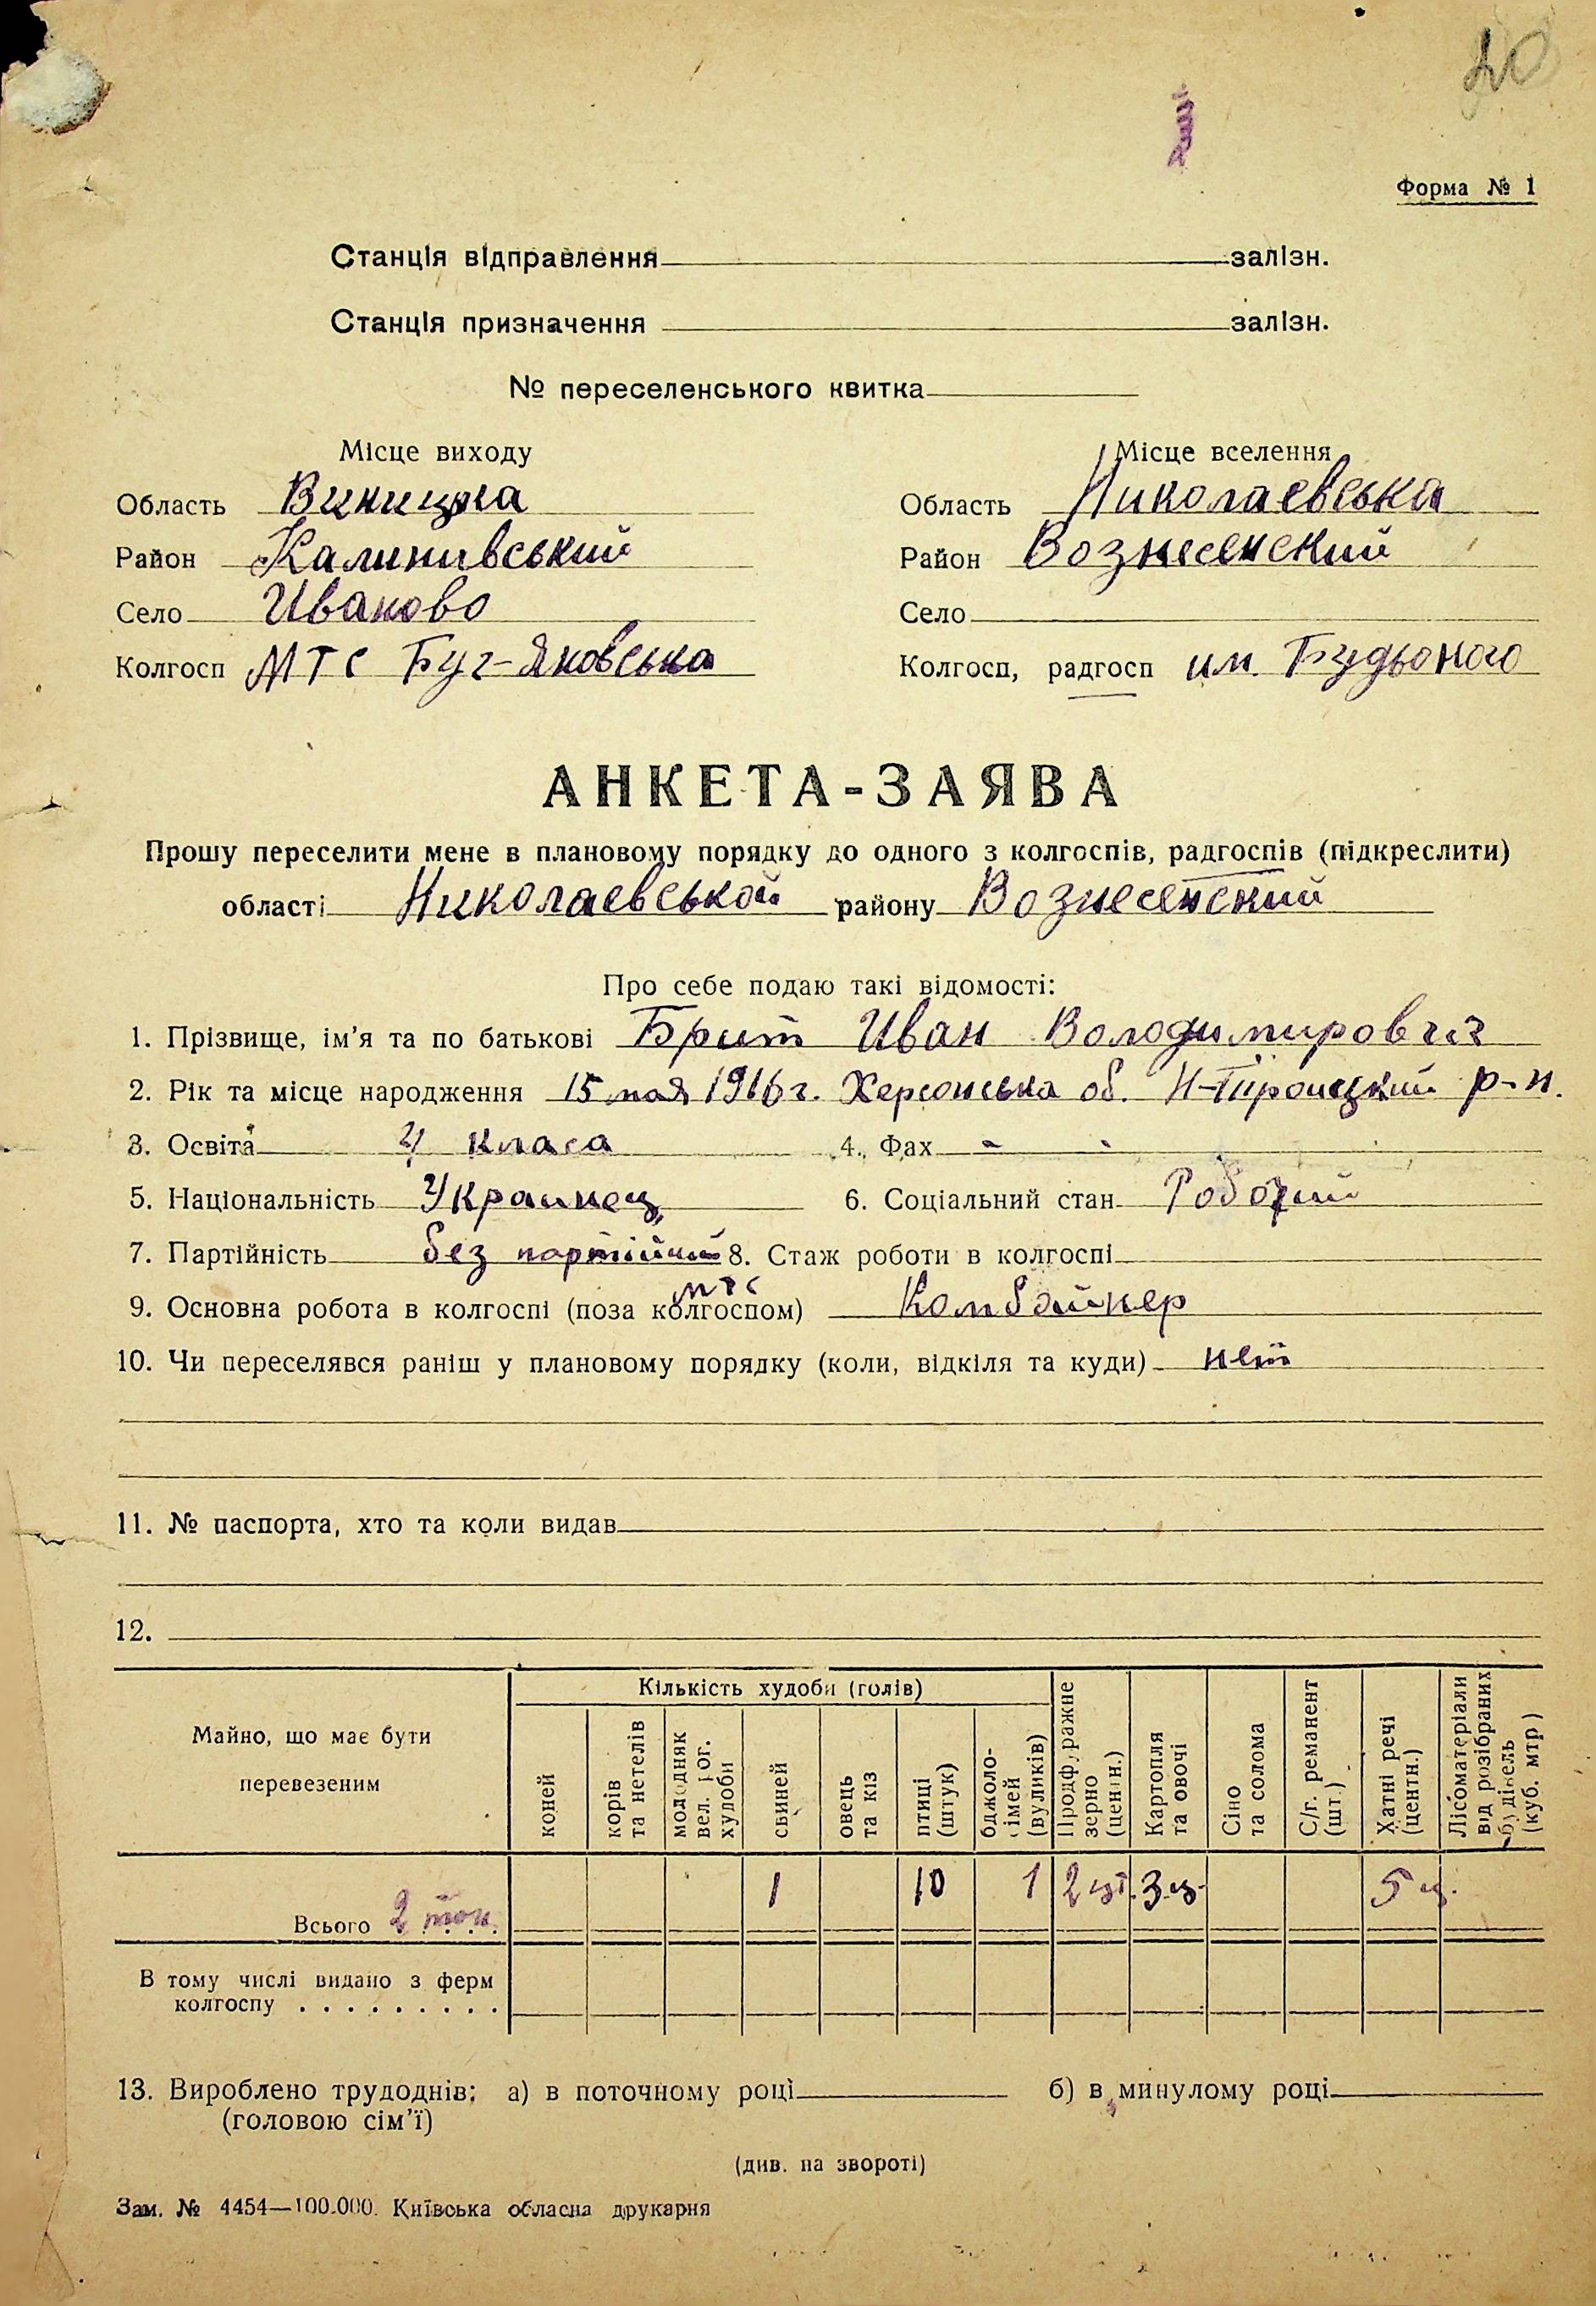 40
Форма № 1
Станція відправлення залізн.
Станція призначення залізн.
№ переселенського квитка
Місце виходу
Область Виницька
Район Калинивський
Село Иваново
Колгосп МТС Буг-Яковська
Місце вселення
Область Николаевська
Район Вознесенский
Село
Колгосп, радгосп им. Будьоного
АНКЕТА-ЗАЯВА
Прошу переселити мене в плановому порядку до одного з колгоспів, радгоспів (підкреслити)
області Николаевськой району Вознесенский
Про себе подаю такі відомості:
1. Прізвище, ім’я та по батькові Брит Иван Володимирович
2. Рік та місце народження 15 мая 1916 г. Херсонська об. Н-Троицкий р-н.
3. Освіта 4 класа 4. Фах -
5. Національність Украинец 6. Соціальний стан Робочий
7. Партійність без партійний 8. Стаж роботи в колгоспі
МТС
9. Основна робота в колгоспі (поза колгоспом) Комбайнер
10. Чи переселявся раніш у плановому порядку (коли, відкіля та куди) нет
11. № паспорта, хто та коли видав
12.
Майно, що має бути перевезеним
Кількість худоби (голів)
коней
корів та нетелів
молодняк вел. рог. худоби
свиней
овець та кіз
птиці (штук)
бджоло-сімей (вуликів)
Продфуражне зерно (центн.)
Картопля та овочі
Сіно та солома
С/г. реманент (шт.)
Хатні речі (центн.)
Лісоматеріали від розібраних будівель (куб. мтр)
Всього 2 тон. 1 10 1 2 цт. 3 ц. 5 ц.
В тому числі видано з ферм
колгоспу . . . . . . . . .
13. Вироблено трудоднів: а) в поточному році б) в минулому році
(головою сім’ї)
(див. на звороті)
Зам. № 4454—100.000. Київська обласна друкарня